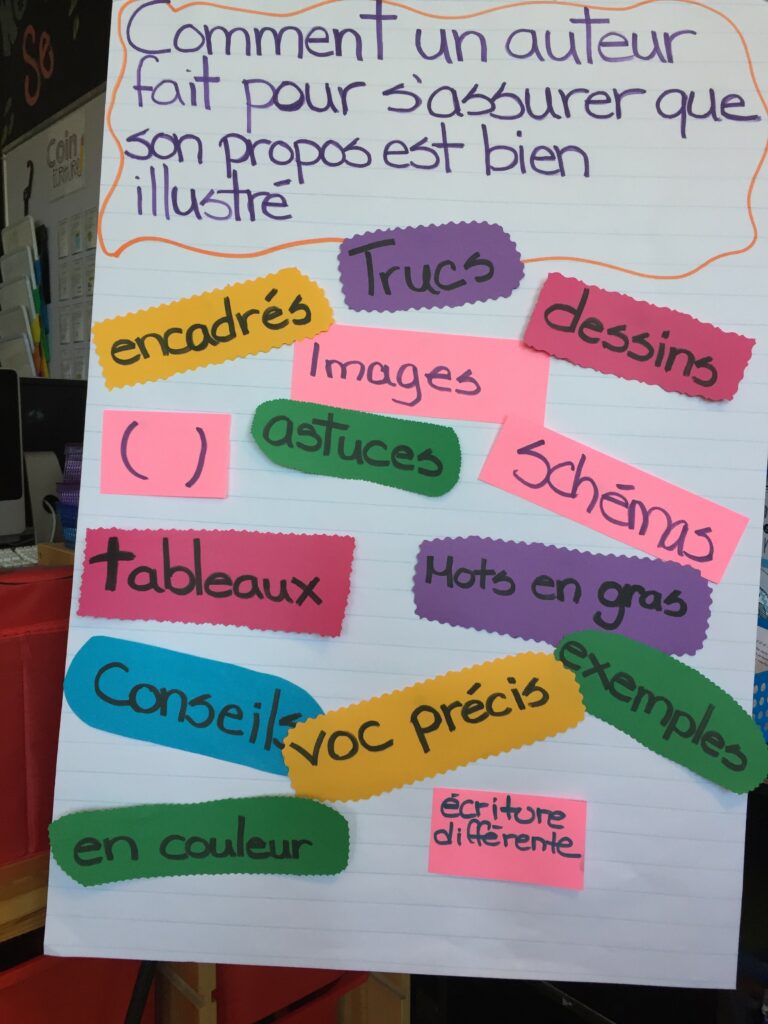 Se
Coin
Comment un auteur
fait pour s'assurer que
son propos est bien
illustré
Trucs
encadrés
dessins
Images
astuces
( )
Schémas
tableaux
Mots en gras
exemples
Conseils
voc précis
en couleur
écriture
différente